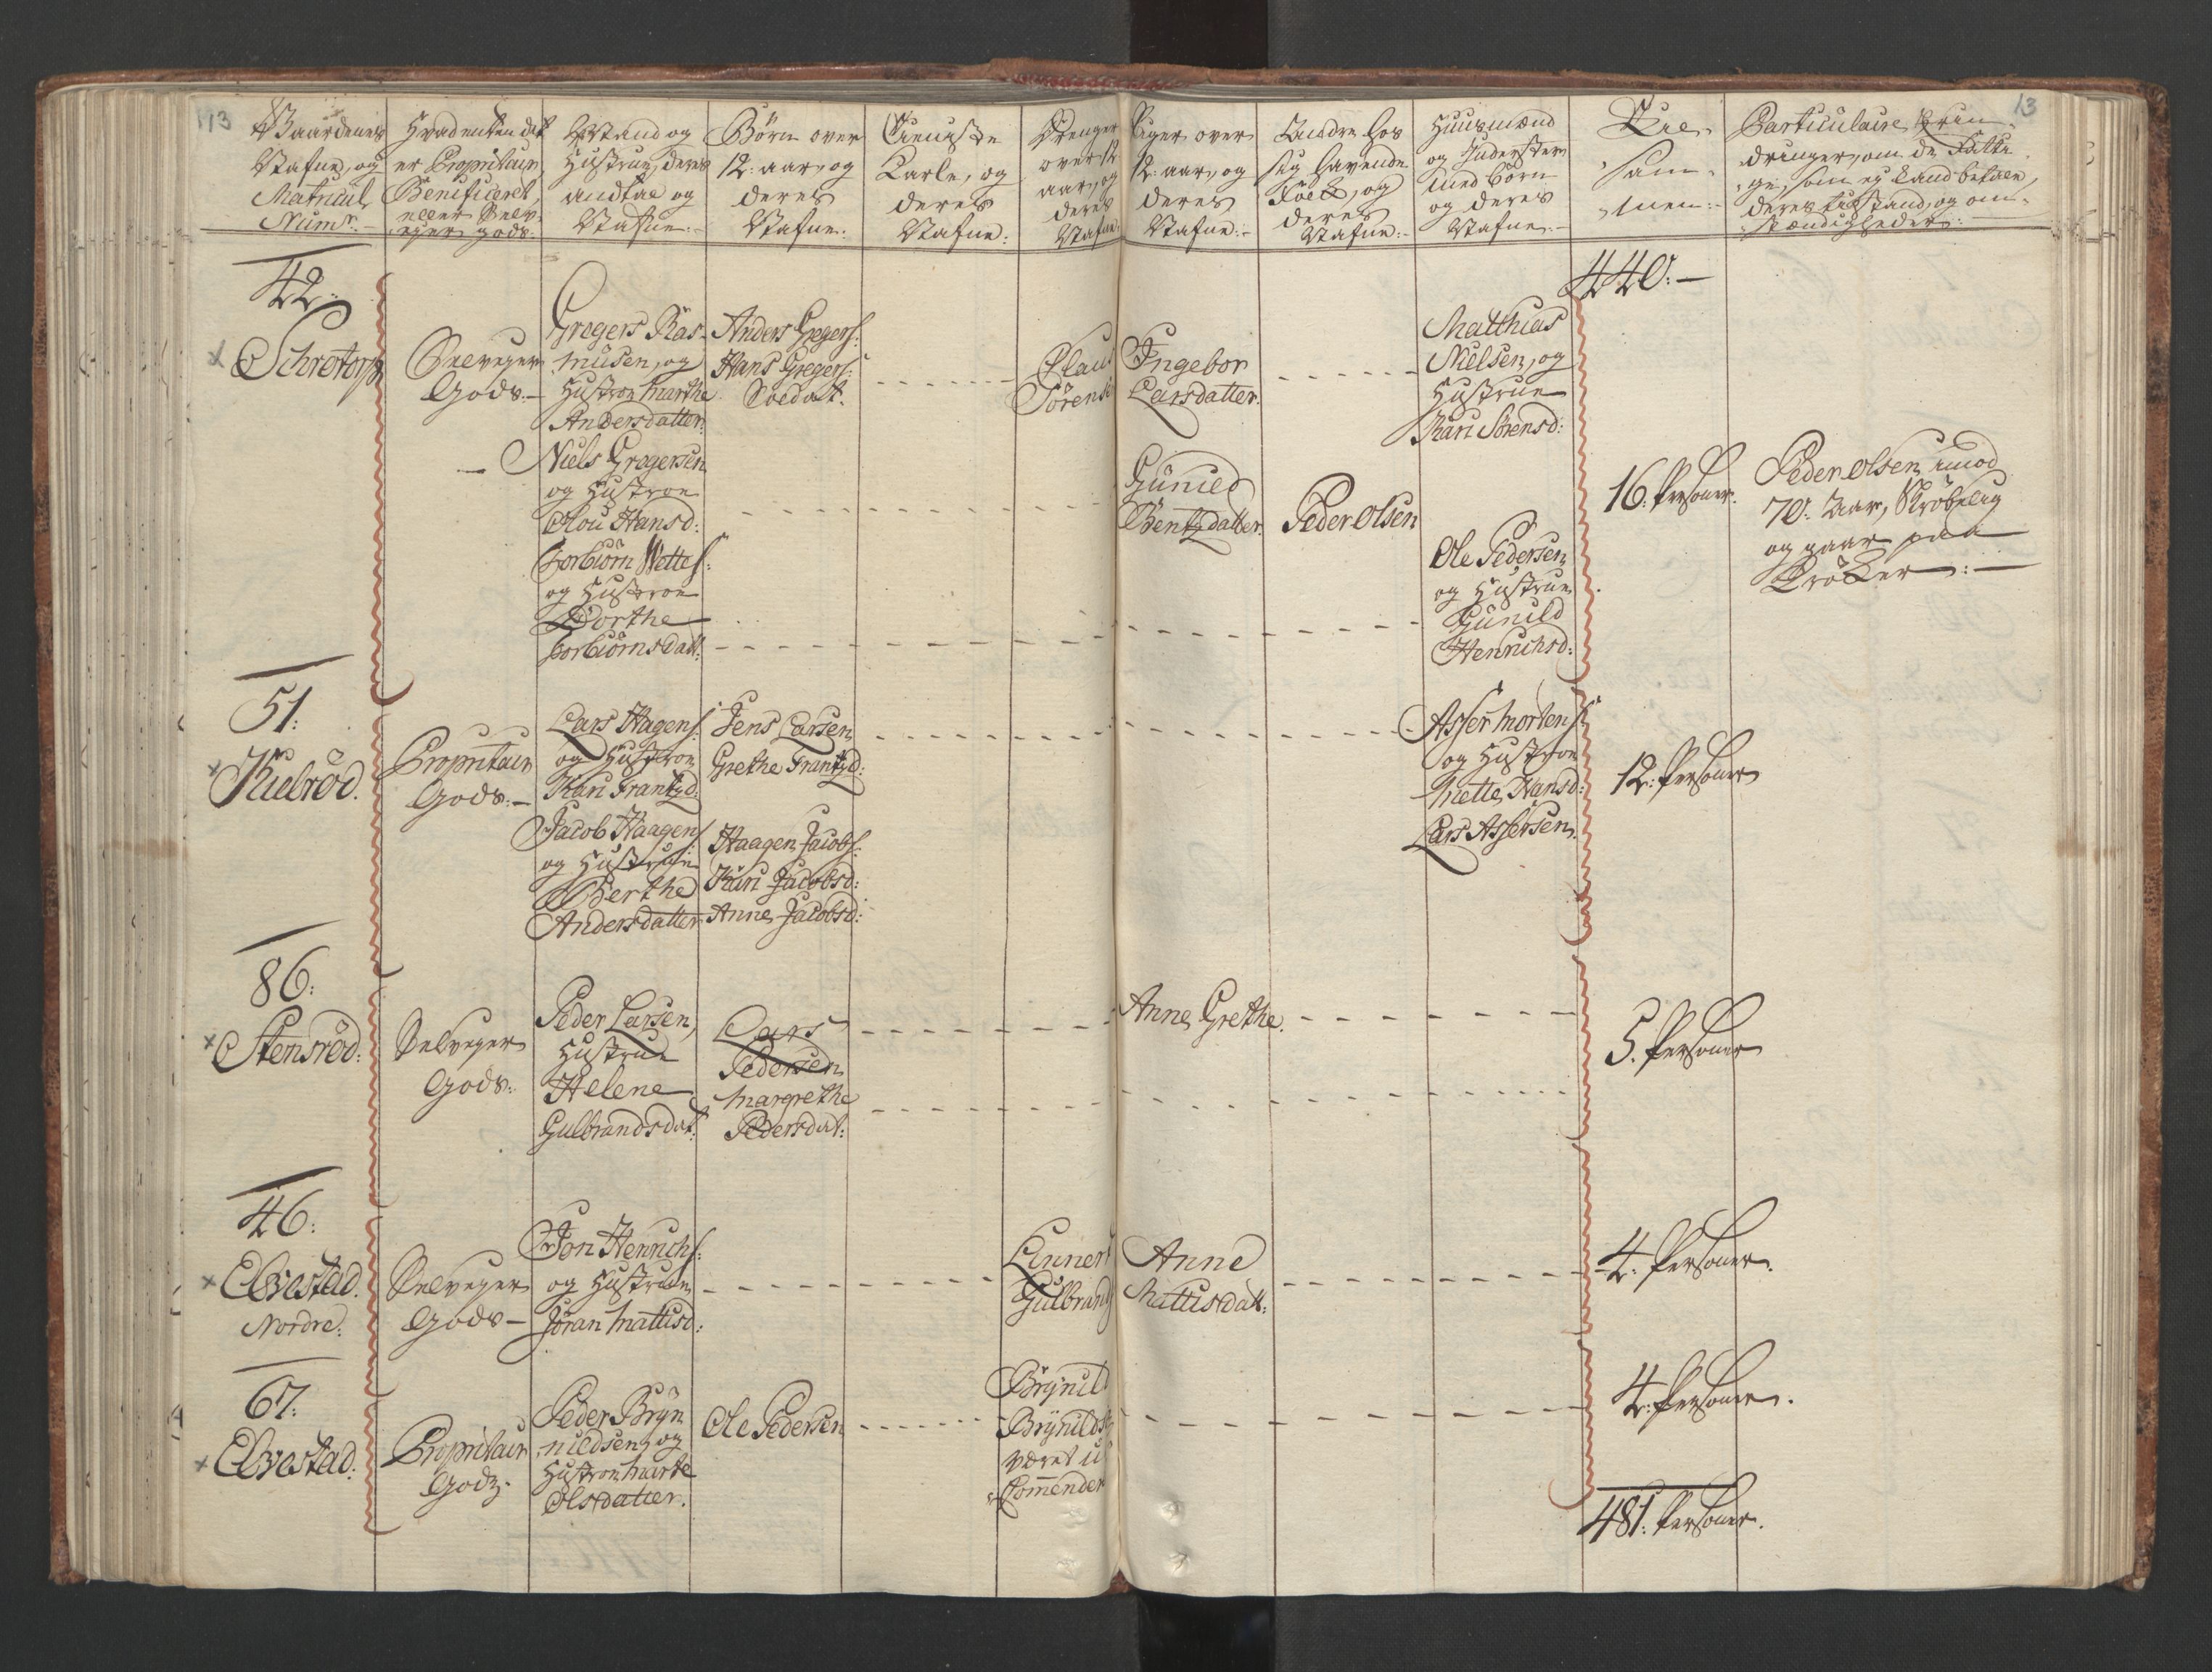 113
13
Gaardenes
Nafne, og
Matricul
Numr:
Hvad enten det
er Propritair,
Benificeret,
eller Selv-
eyer gods:
Mænd og
Hustrue, deres
andtal og
Nafne:
Børn over
12: aar, og
deres
Nafne:
Tieniste
Karle, og
deres
Nafne:
Drenger
over 12
aar, og
deres
Nafne:
Piger over
12: aar, og
deres
Nafne:
Andre hos
sig havende
Folk, og
deres
Nafne:
Huusmænd
og Inderster
med børn
og deres
Nafne:
Til-
sam-
men:
Particulaire Erin-
dringer, om de Fatti-
ge, som ey kand betale,
deres tilstand, og om-
stændigheder:
440:
42:
Schretorp
Selveyer
Gods:
Gregers Ras-
musen, og
Hustroe Marthe
Andersdatter:
Anders Gregers:
Hans Gregers:
Soldat.
Claus
Sørens
Ingebor
Larsdatter.
Matthias
Nielsen, og
Hustrue
Kari Sørensd:
Niels Gregersen
og Hustroe
Olou Hansd:
Gunild
Bentzdatter.
Peder Olsen
16: Personer.
Peder Olsen imod
70: Aar, Skrøbelig
og gaar paa
Krøker:
Torbiørn Wettes:
og Hustroe
Dorthe
Torbiørnsdatt:
Ole Pedersen
og Hustrue
Gunild
Henrichsd:
51:
Kielrød.
Propritair
Gods:
Lars Hagens:
og Hustroe
Kari Frantzd:
Jens Larsen
Grethe Frantzd:
Asser Mortens:
og Hustroe
Mette Hansd:
Lars Assersen.
12: Personer
Jacob Haagens:
og Hustrue
Berthe
Andersdatter
Haagen Jacobs:
Kari Jacobsd:
Anne Jacobsd:
86:
Stensrød:
Selveyer
Gods:
Peder Larsen,
Hustrue
Helene
Gulbrandsdat:
Lars
Pedersen
Margrethe
Pedersdat:
Anne Grethe.
5. Personer
46:
Elvestad.
Nordre:
Selveyer
Gods
Jon Henrichs:
og Hustrue
Jøran Mattisd:
Linnert
Gulbrands
Anne
Mattisdatt:
4: Personer.
67:
Elvestad:
Propritair
Godz.
Peder Bryn-
nieldsen, og
Hustroe Marte
Olsdatter.
Ole Pedersen
Brynild
Brynilds
været u
Commender
4: Personer.
481: Personer.